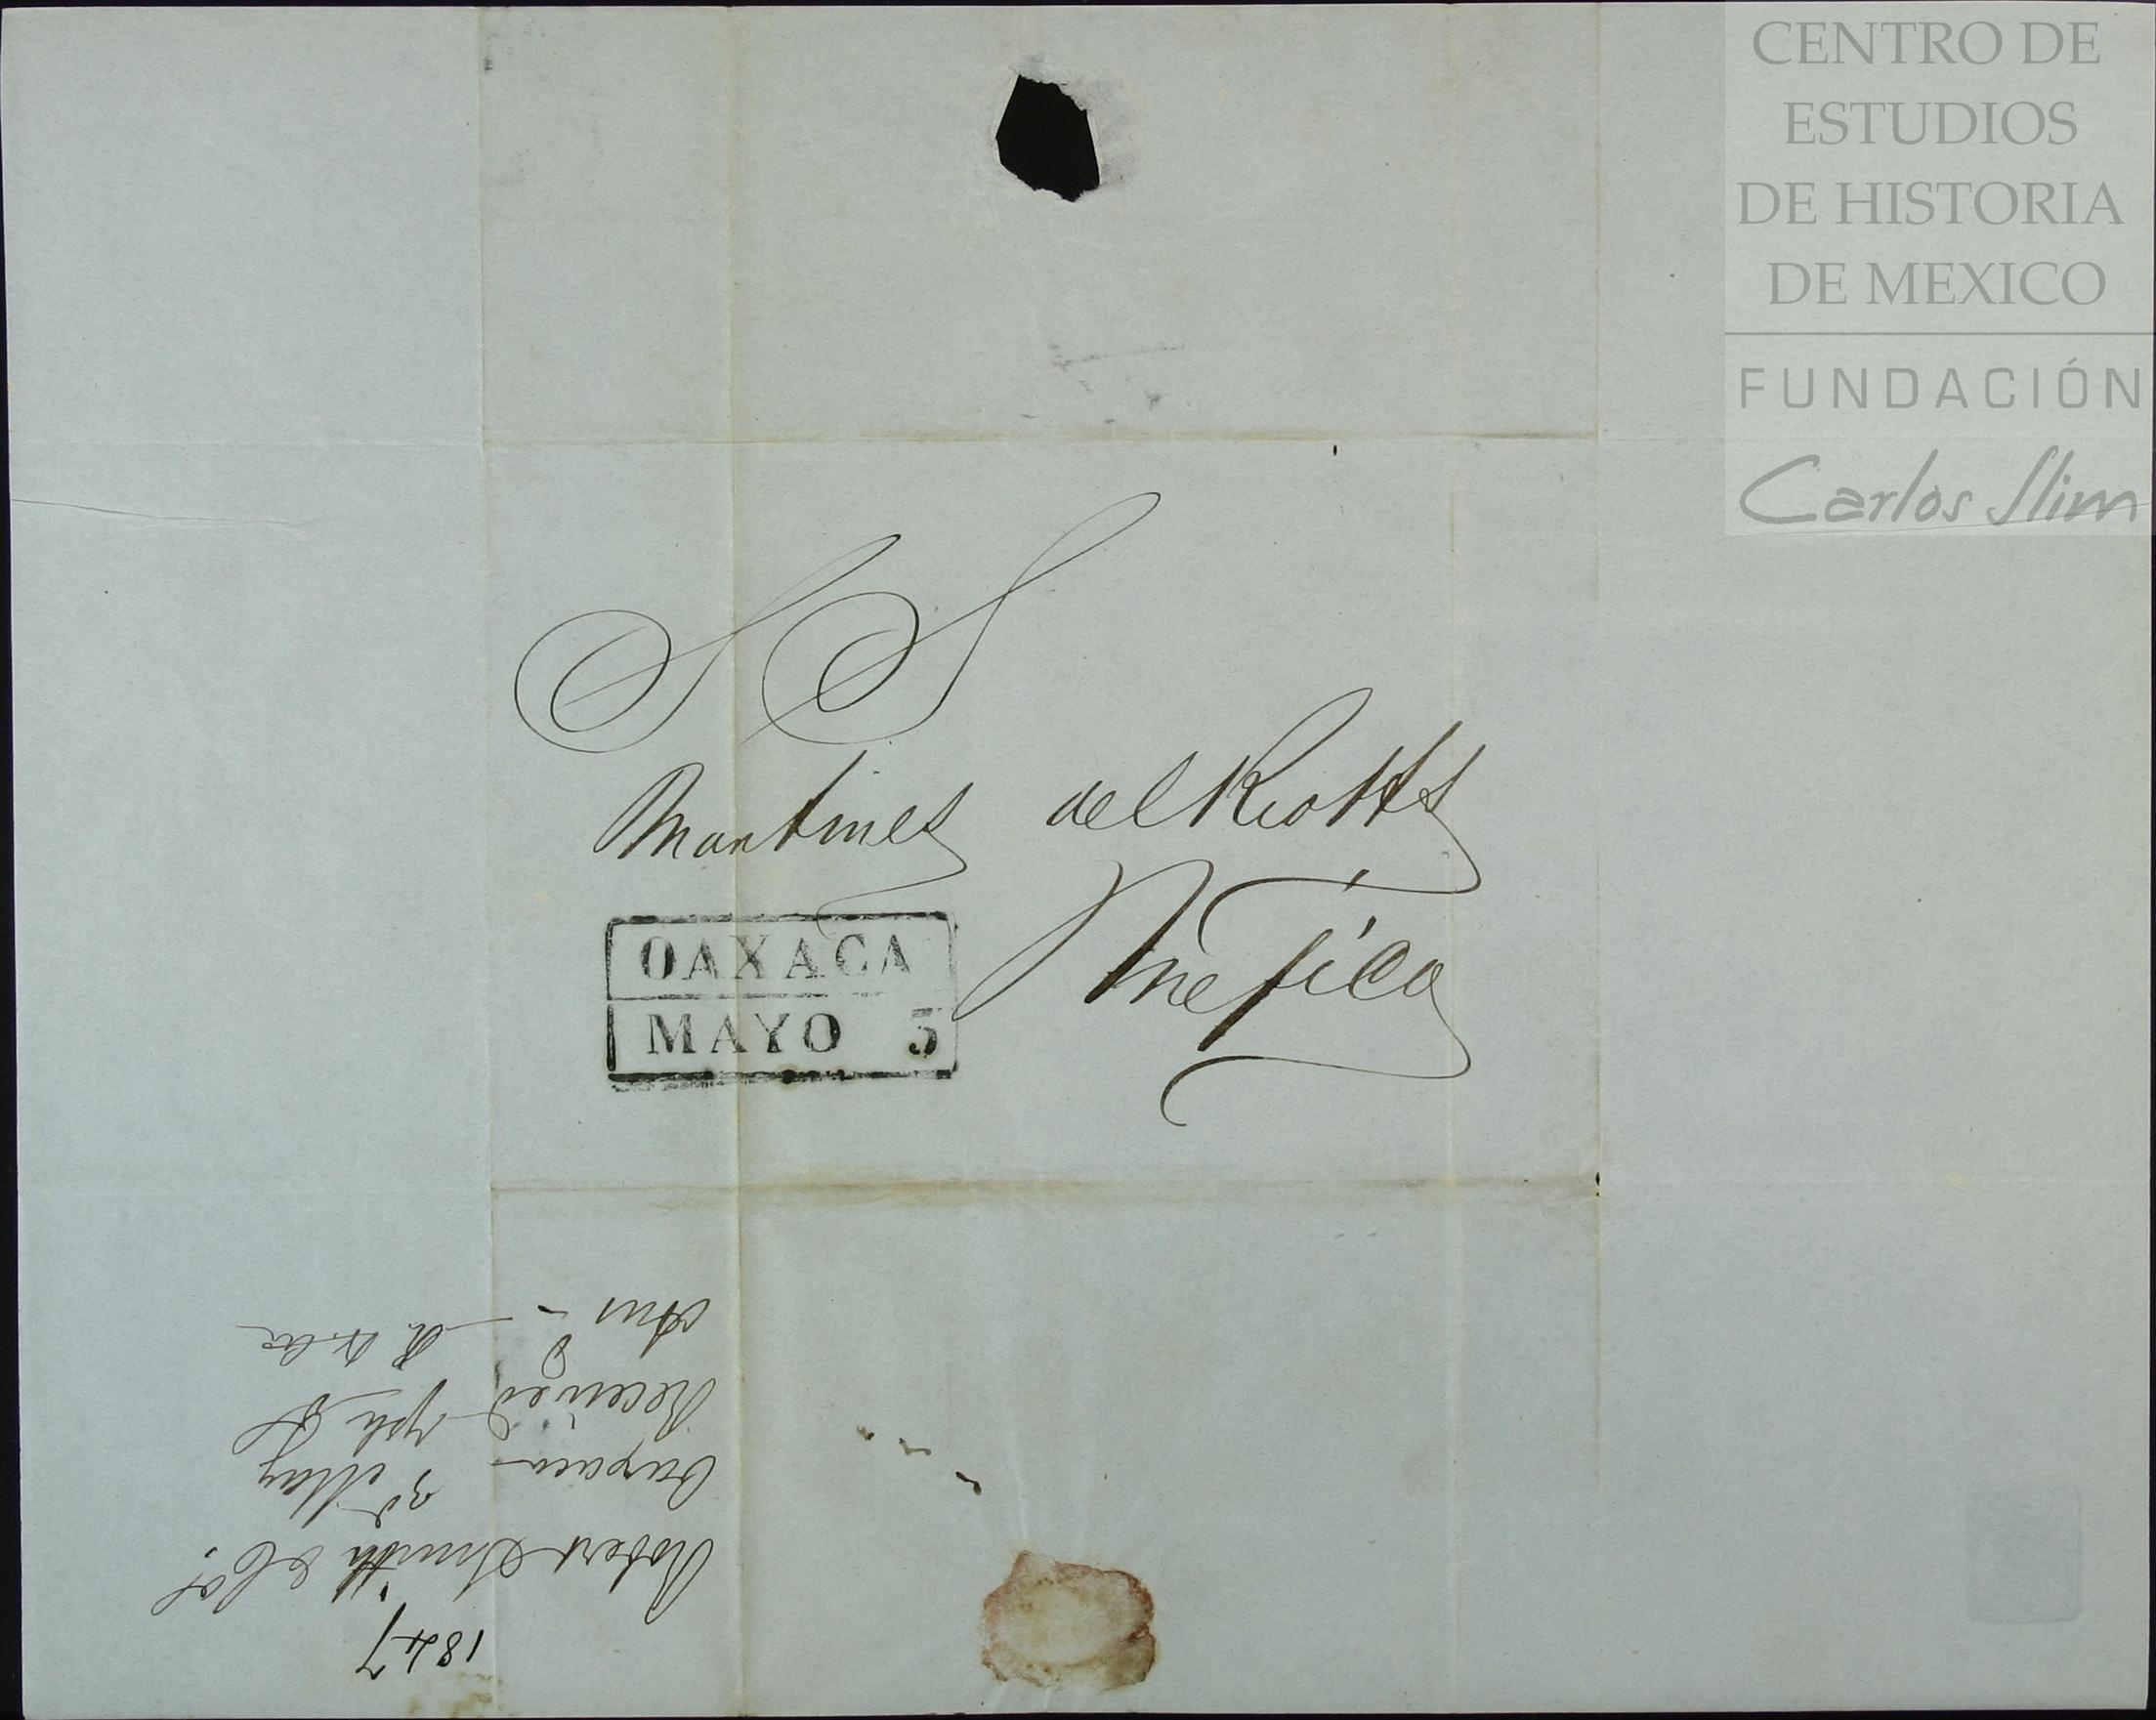 CENTRO DE
ESTUDIOS
DE HISTORIA
DE MEXICO
FUNDACIÓN
Carlos Slim
S S
Martinez del Rio Hs
Mejico
OAXACA
MAYO 5
1847
Robert Smith & Co.
Oaxaca 3d May
Received
Ans